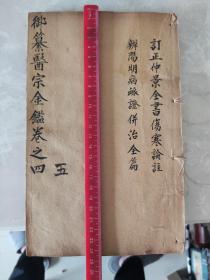 訂正仲景全書傷寒論註
辨陽明病脉證併治全篇
御纂醫宗金鑑卷之四
五